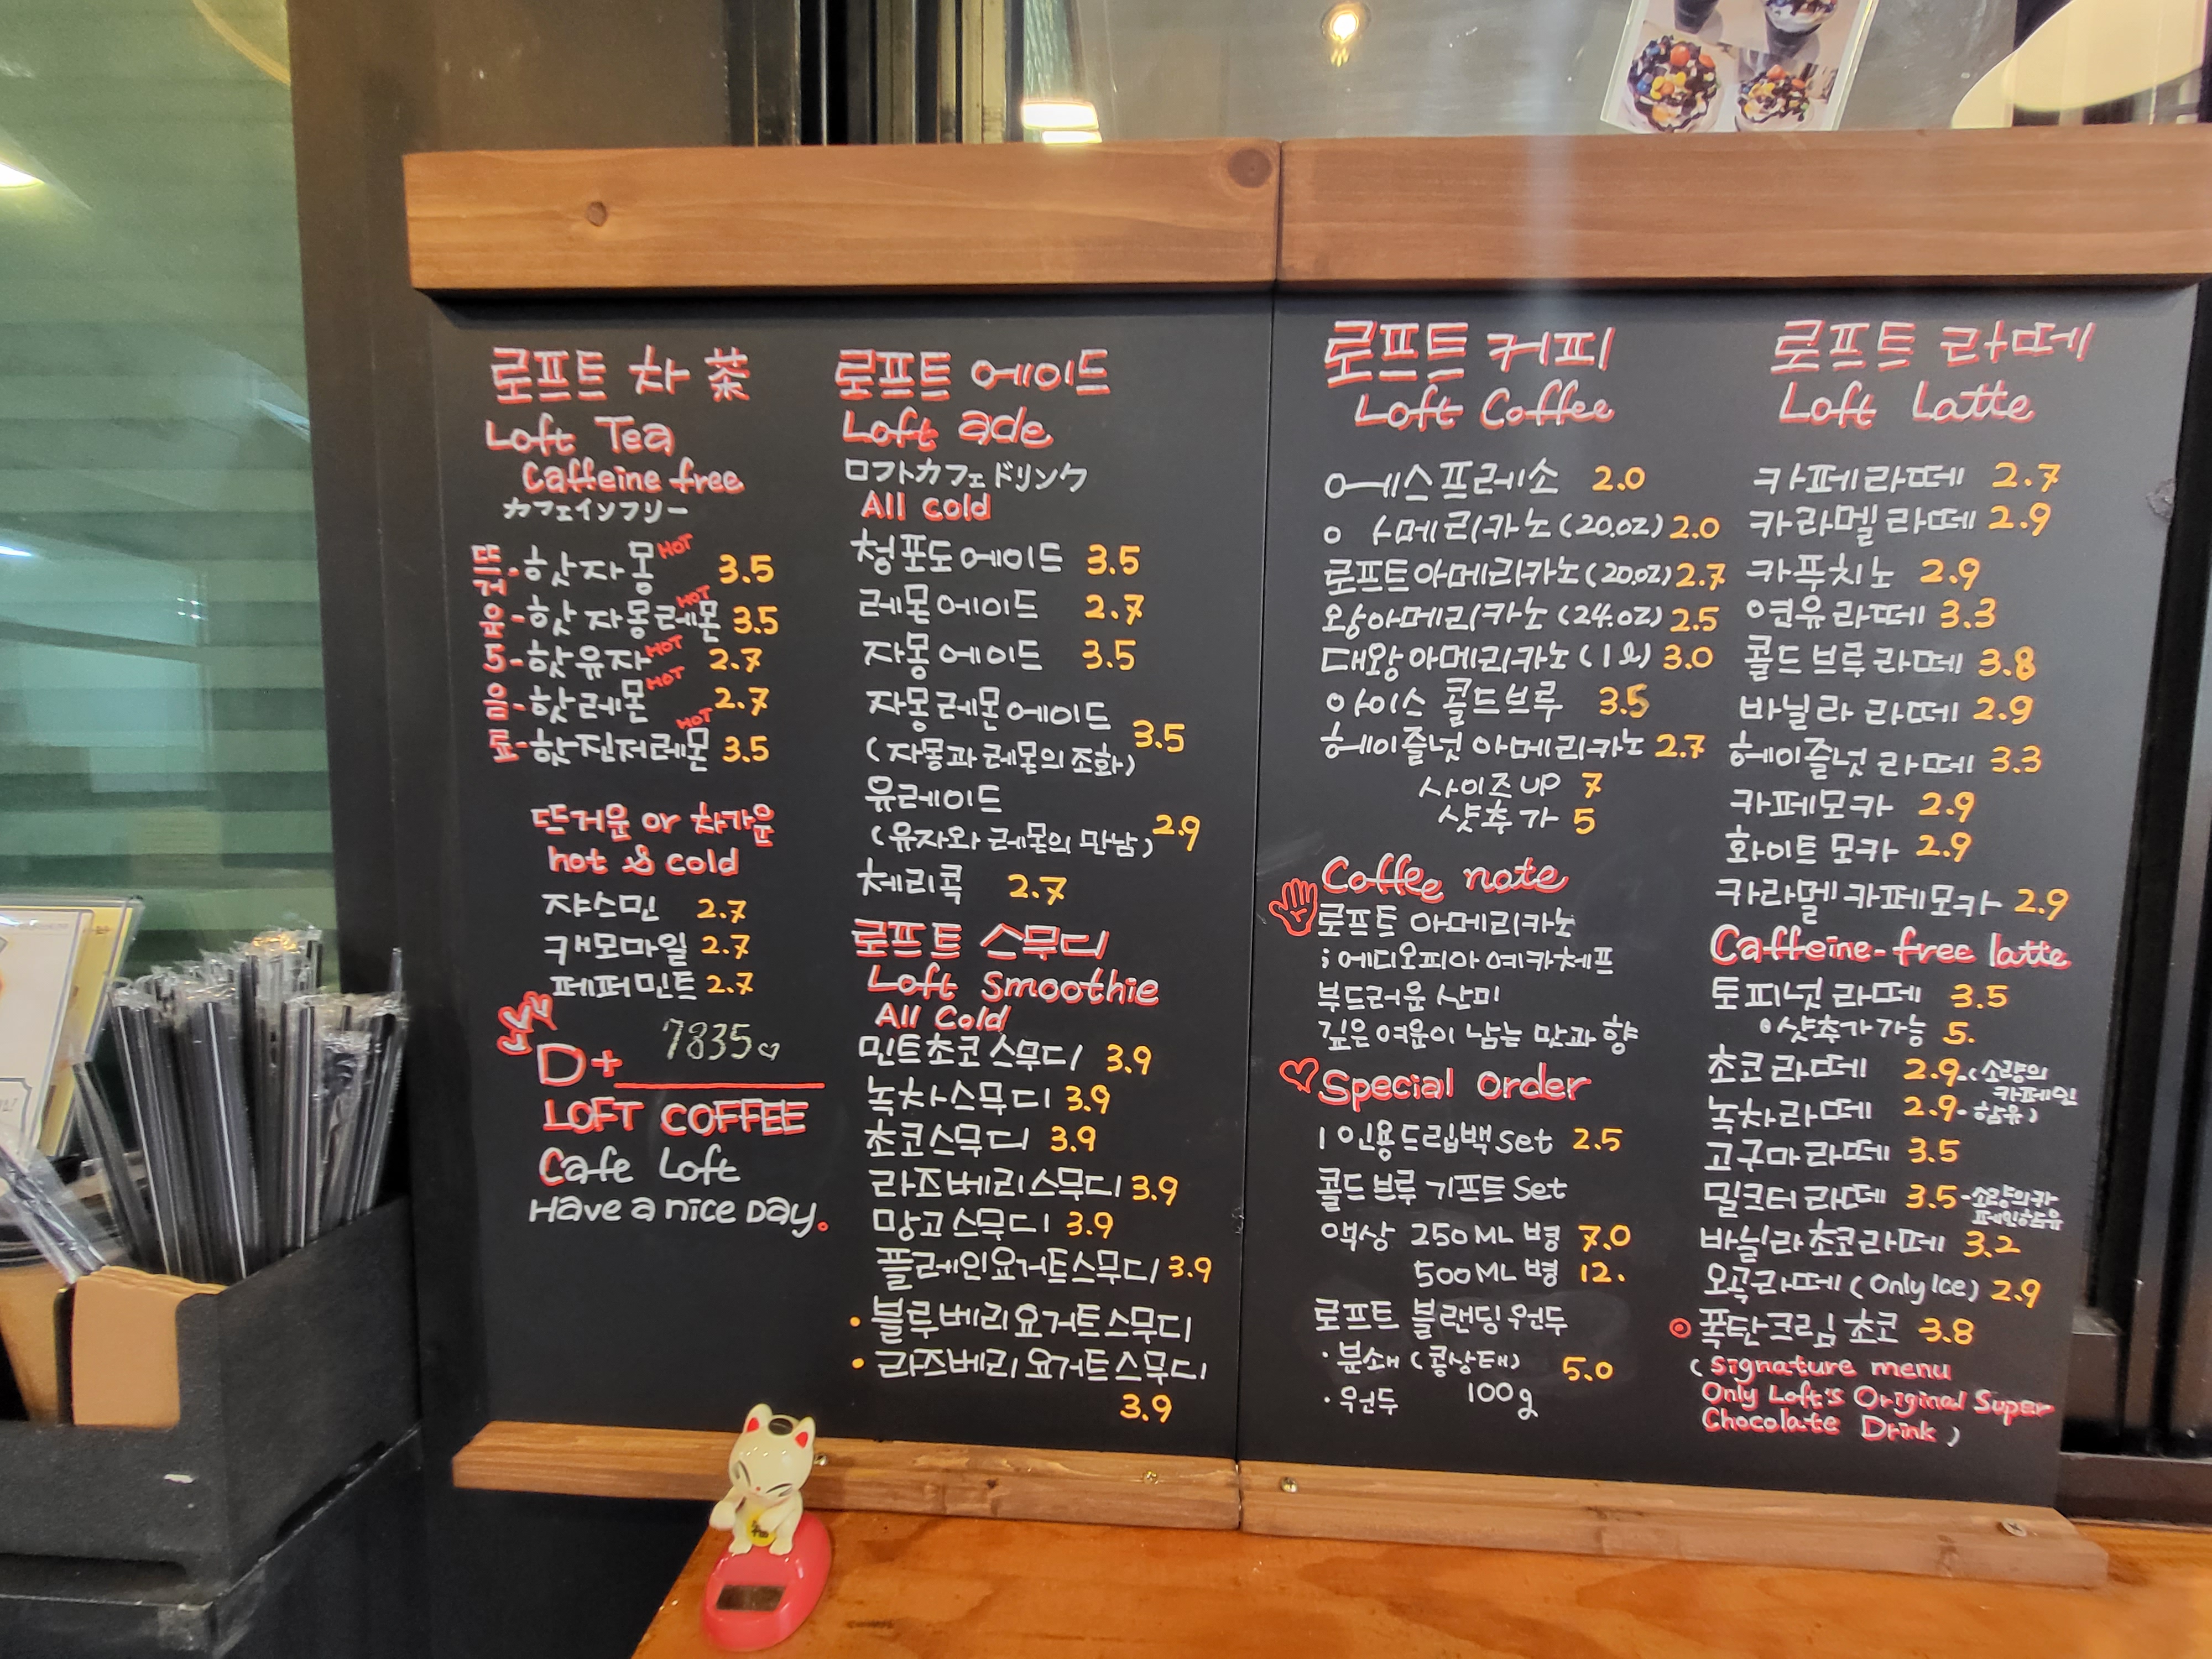 로프트 차 茶
Loft Tea
Caffeine free
カフェインフリー
뜨거운 5 음료
핫자몽 HOT 3.5
핫 자몽레몬 HOT 3.5
핫유자 HOT 2.7
핫레몬 HOT 2.7
핫진저레몬 HOT 3.5
뜨거운 or 차가운
hot & cold
쟈스민 2.7
캐모마일 2.7
페퍼민트 2.7
D+ 7835
LOFT COFFEE
Cafe Loft
Have a nice Day.
로프트 에이드
Loft ade
ロフトカフェドリンク
All cold
청포도에이드 3.5
레몬에이드 2.7
자몽에이드 3.5
자몽레몬에이드 3.5
(자몽과레몬의조화)
유레이드
(유자와 레몬의 만남) 2.9
체리콕 2.7
로프트 스무디
Loft Smoothie
All Cold
민트초코스무디 3.9
녹차스무디 3.9
초코스무디 3.9
라즈베리스무디 3.9
망고스무디 3.9
플레인요거트스무디 3.9
• 블루베리요거트스무디
• 라즈베리요거트스무디
3.9
로프트 커피
Loft Coffee
에스프레소 2.0
메리카노 (20.oz) 2.0
로프트아메리카노 (20.oz) 2.7
왕아메리카노 (24.oz) 2.5
대왕아메리카노 (1ℓ) 3.0
아이스 콜드브루 3.5
헤이즐넛 아메리카노 2.7
사이즈 UP 7
샷추가 5
Coffee note
로프트 아메리카노
; 에디오피아 예카체프
부드러운 산미
깊은 여운이 남는 맛과 향
Special order
1인용드립백 set 2.5
콜드브루 기프트 Set
액상 250ML 병 7.0
500ML 병 12.
로프트 블랜딩 원두
· 분쇄 (콩상태) 5.0
· 원두 100g
로프트 라떼
Loft Latte
카페라떼 2.7
카라멜라떼 2.9
카푸치노 2.9
연유라떼 3.3
콜드브루라떼 3.8
바닐라 라떼 2.9
헤이즐넛 라떼 3.3
카페모카 2.9
화이트 모카 2.9
카라멜 카페모카 2.9
Caffeine-free latte
토피넛 라떼 3.5
샷추가가능 5.
초코라떼 2.9 (소량의
카페인
녹차라떼 2.9 함유)
고구마라떼 3.5
밀크티라떼 3.5 - 소량의카
페인함유
바닐라초코라떼 3.2
오곡라떼 (Only Ice) 2.9
폭탄크림초코 3.8
(signature menu
Only Loft's Original Super
Chocolate Drink)